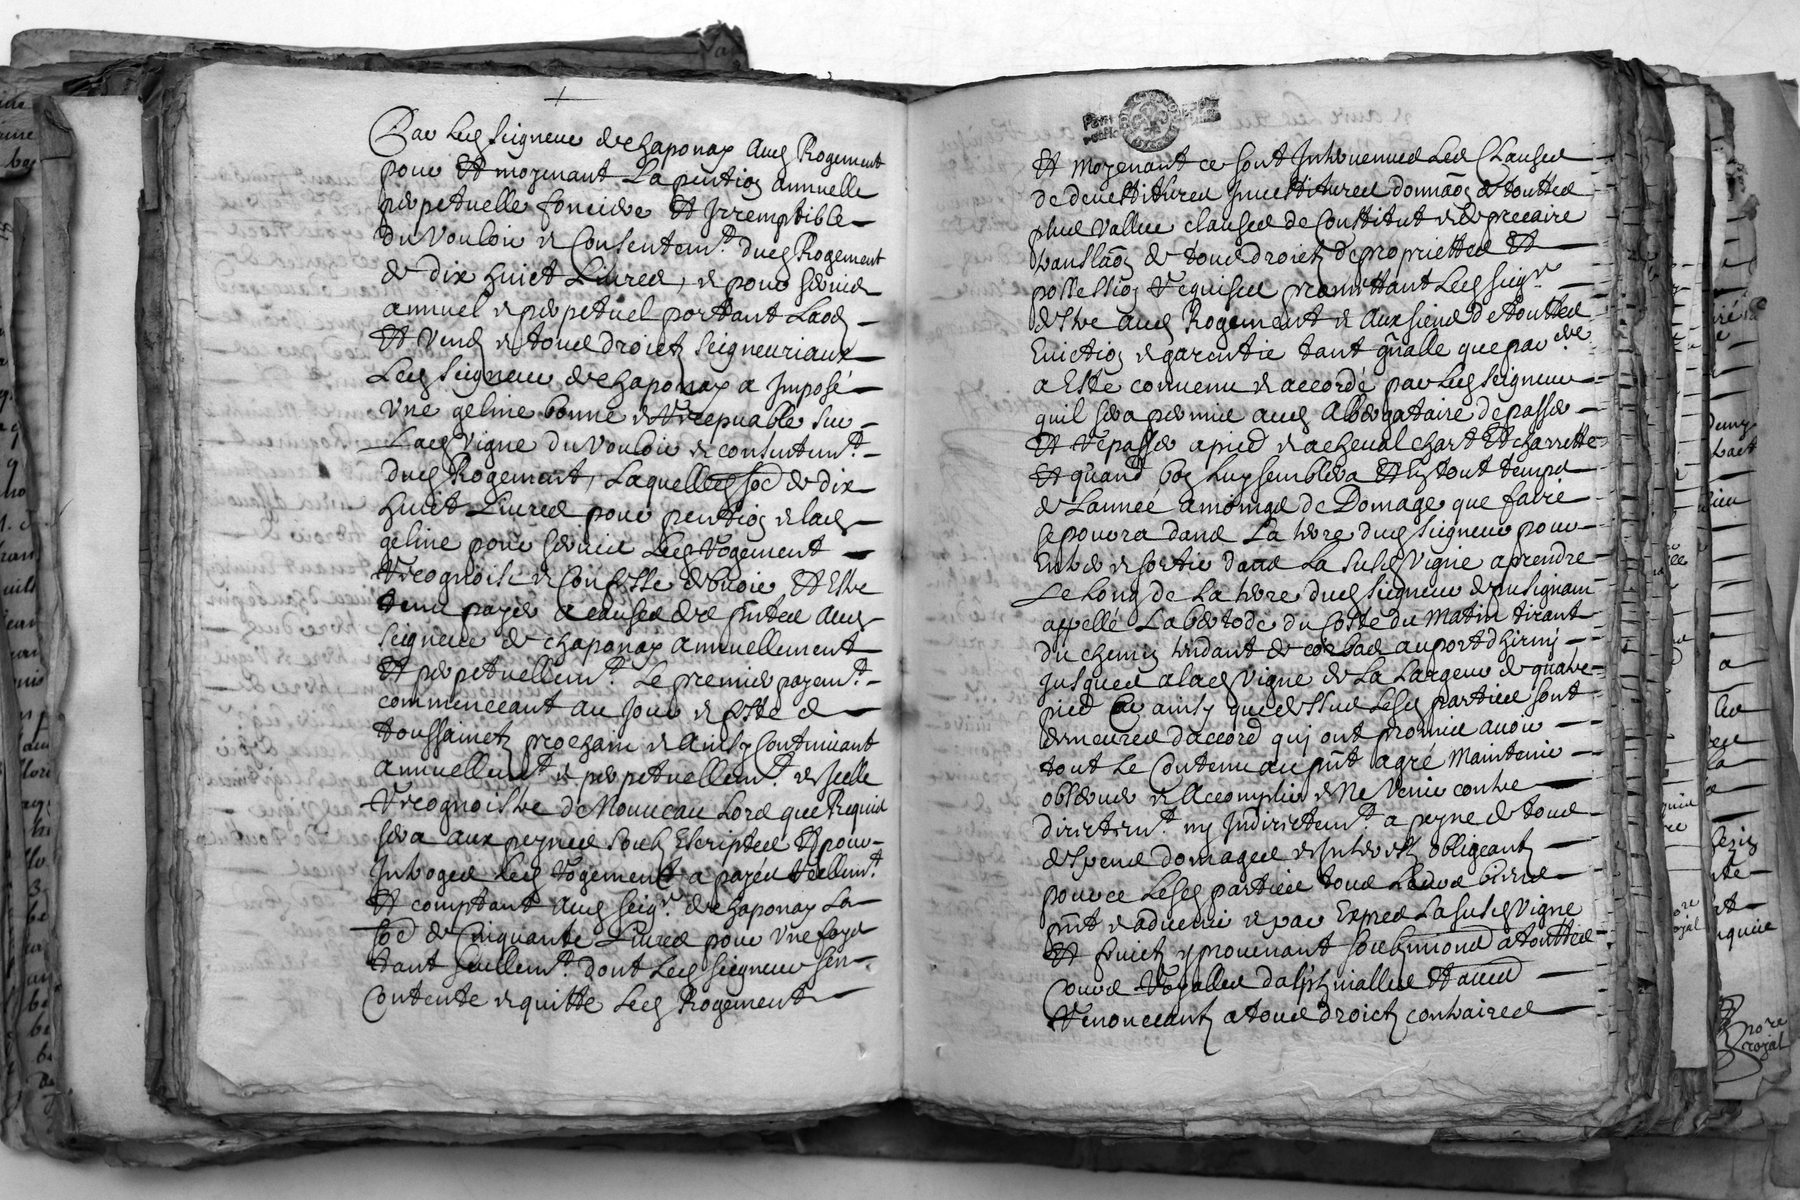 Par led seigneur de chaponay aud Rogement
pour Et moyenant La pention annuelle
perpetuelle fonciere Et Irremptible
du Vouloir et Consentemt. dud Rogement
de dix huict Livres, et pour servis
annuel et perpetuel portant Laod
Et Vend et tous droicts seigneuriaux
Led seigneur de chaponay a Imposé
Une geline bonne et Recepuable sur
Lad vigne du vouloir et consentemt.
dud Rogement, Laquelle so͞e de dix
huict Livres pour pention et lad
geline pour servis Led Rogement
Recognoist et Confesse debvoir Et Estre
tenu payer a cause des pntes aud
seigneur de chaponay annuellement
Et perpetuellemt. Le premier payemt.
commenceant au jour et feste de
toussaincts prochain et Ainsy Continuant
annuellemt. et perpetuellemt. et Icelle
Recognoistre de Nouveau Lors que Requis
sera aux peynes soubs Escriptes Et pour
Introges Led Rogement a payé reellemt.
Et comptant aud seigr. de chaponay La
so͞e de Cinquante Livres pour une foys
tant seullemt. dont Led seigneur s'en
Contente et quitte Led Rogement
Et moyenant ce sont Intervenues Les Clauses
de devestitures Investitures donnaõn de touttes
plus vallues clauses de Constitut et de precaire
translaõn de tous droicts de proprietté Et
possession requises promettant Led seigr.
Estre aud Rogement et aux siens de touttes
Eviction et garentie tant gñalle que par
a Esté convenu et accordé par Led seigneur
quil sera permis aud Albergataire de passer
Et repasser a pied et a cheval chart Et charrette
Et quand bon Luy semblera Et En tout temps
de Lannée a moings de Domage que faire
se pourra dans La terre dud seigneur pour
Entrer et sortir dans La susd vigne a prendre
Le Long de La terre dud seigneur de pusignan
appellé La bertode du Costé du Matin tirant
du chemin tendant de corbas au port dhirini
jusques a lad vigne de La Largeur de quatre
pied Car ainsy que dessus Lesd parties sont
demeures daccord qui ont promis avoir
tout Le Contenu au pñt agré Maintenir
observer et Accomplir et Ne venir contre
dirictemt. ny Indirictemt. a peyne de tous
despens domages et Interests obligeants
pour ce Lesd parties tous Leurs biens
pñt et advenir et par Expres La susd vigne
Et fruicts y provenant soubzmions a touttes
Cours Royalles dalphinalles Et autres
Renonceants a tous droicts contraires